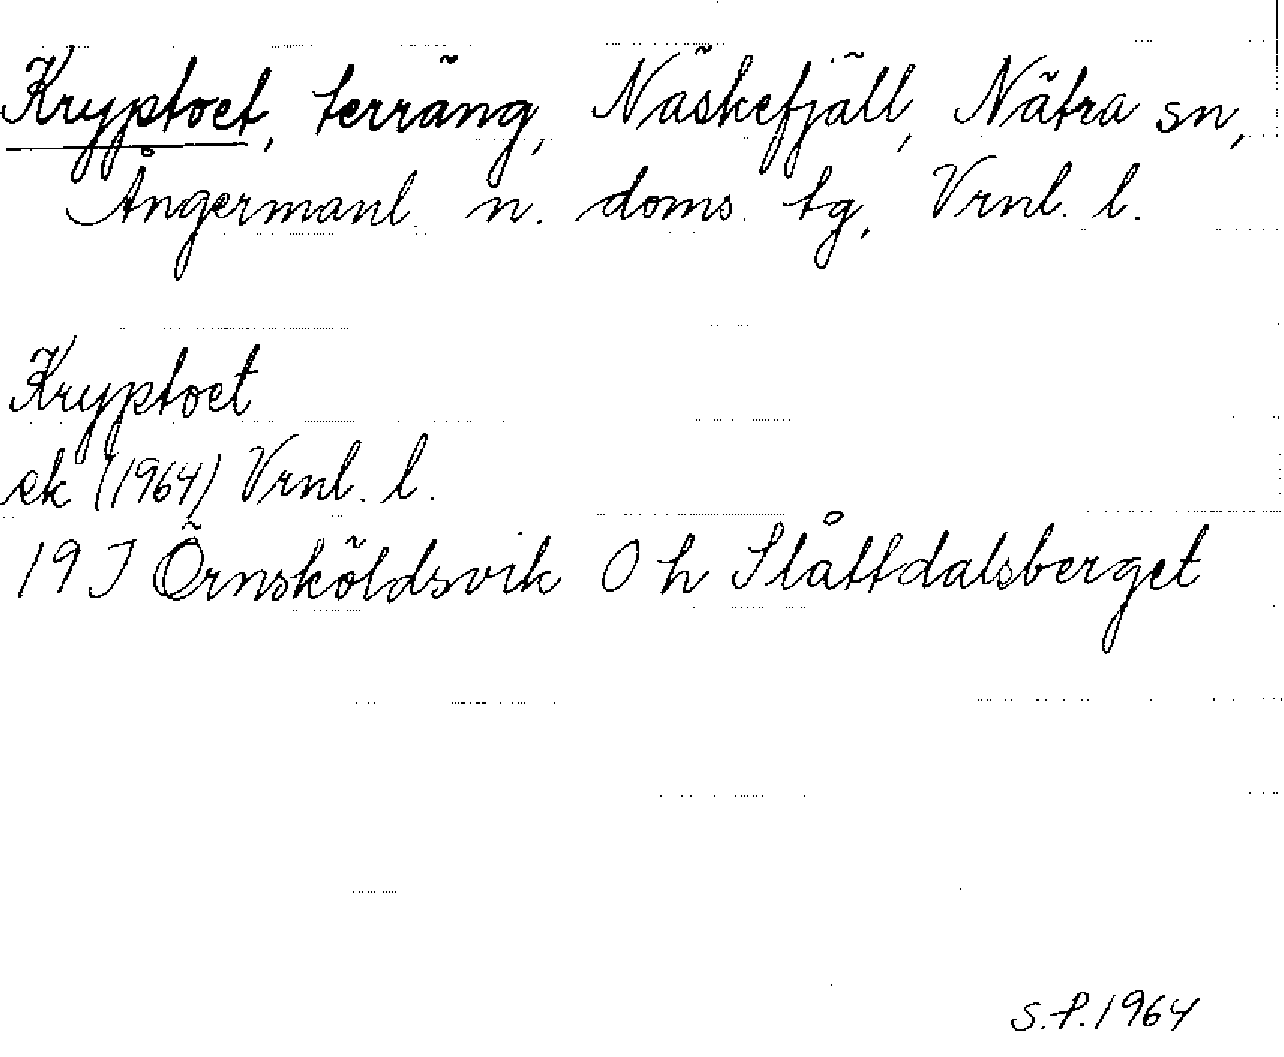 Kryptoet, terräng, Näskefjäll, Nätra sn,
Ångermanl. n. doms. tg, Vrnl. l.
Kryptoet
ek (1964) Vrnl. l.
19 J Örnsköldsvik O h Slåttdalsberget
S.P. 1964